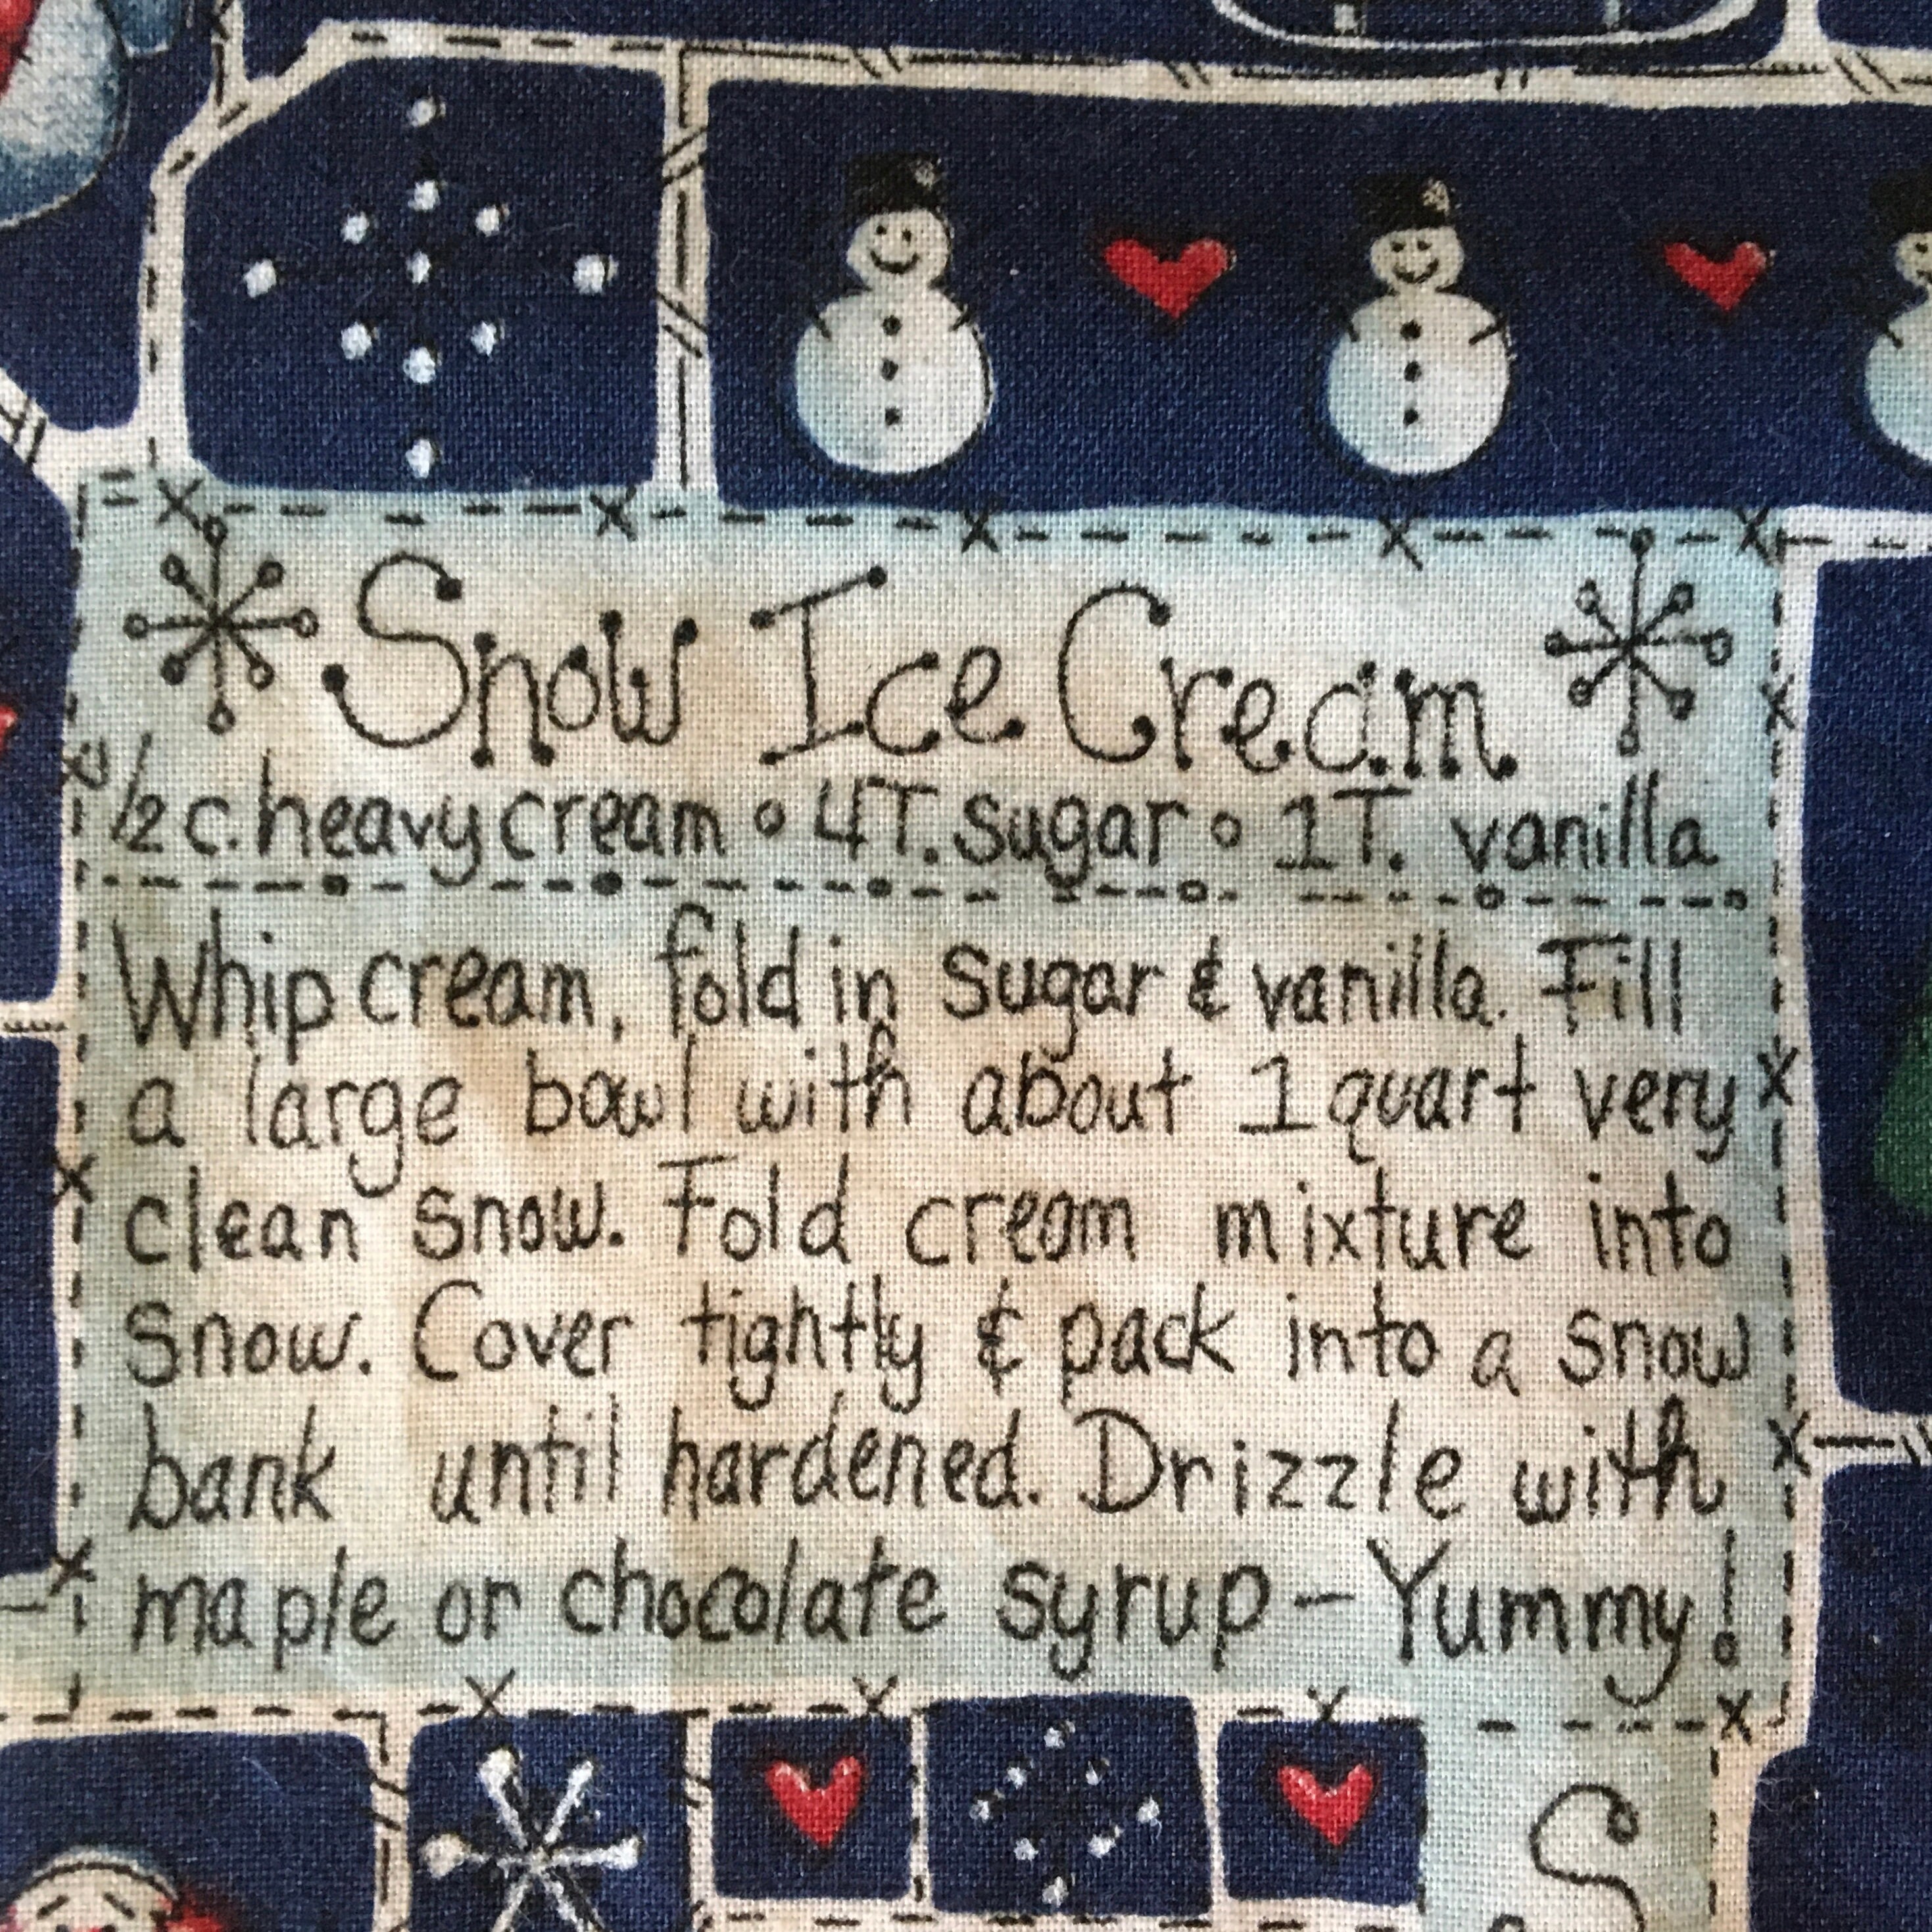 Snow Ice Cream
1/2 c. heavy cream o 4T. sugar o 1T. vanilla
Whip cream, fold in sugar & vanilla. Fill
a large bowl with about 1 quart very
clean snow. Fold cream mixture into
snow. Cover tightly & pack into a snow
bank until hardened. Drizzle with
maple or chocolate syrup - Yummy!
S